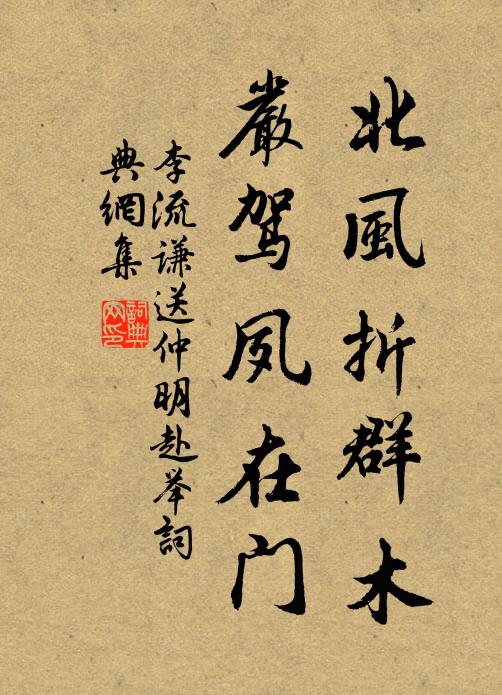 北風折群木
嚴駕夙在门
李流谦送仲明赴举詞
典網集
詞典
网印